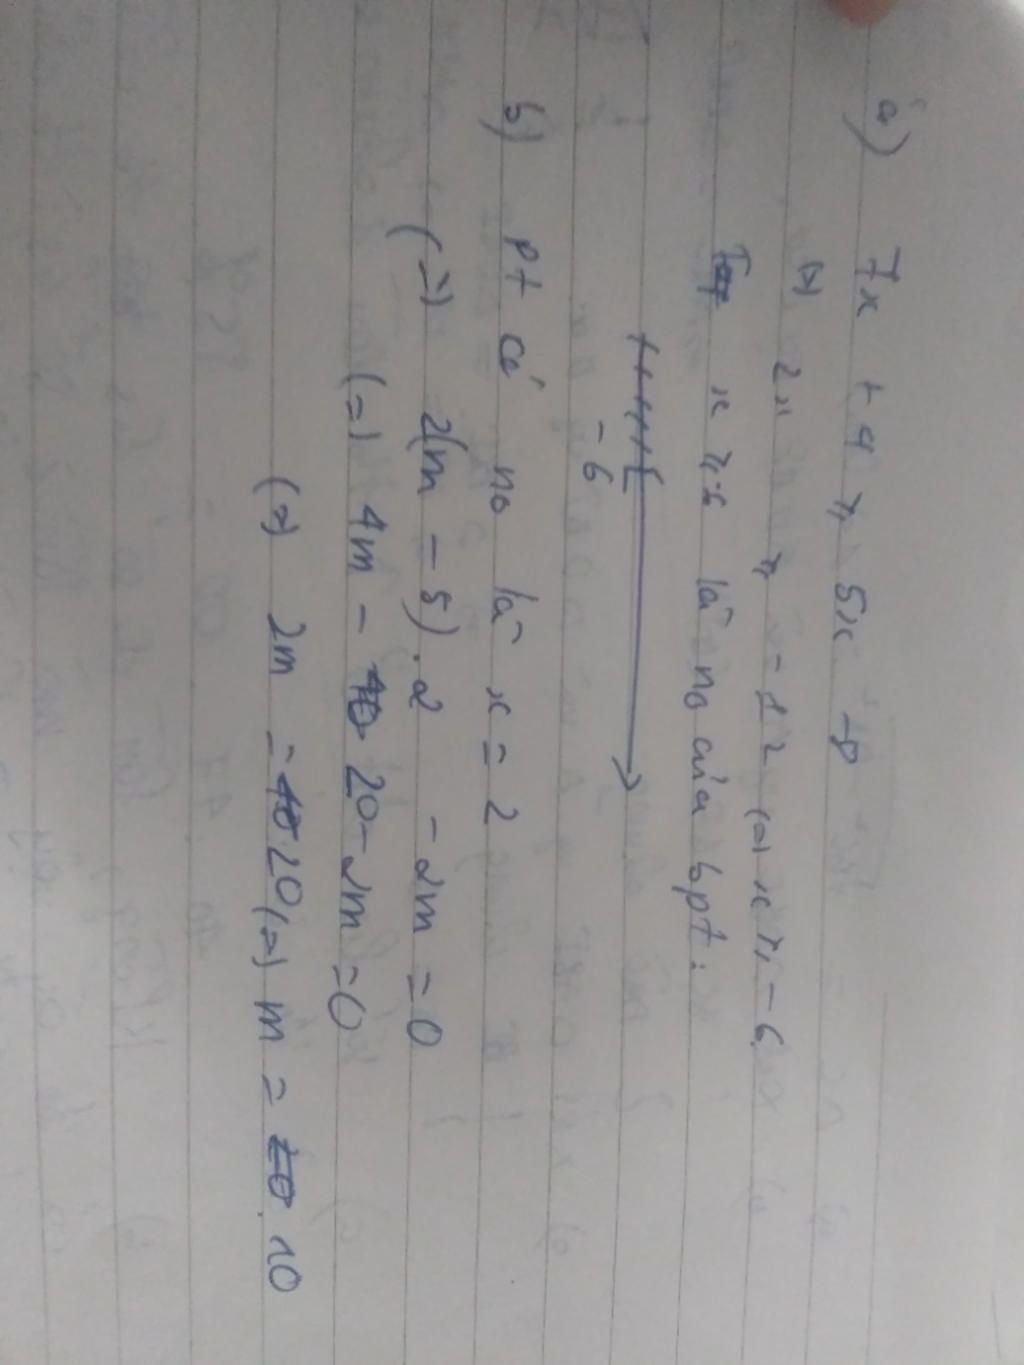 a) 7x + 4 ≥ 5x - 8
(=) 2x ≥ -12 (=) x ≥ -6
x ≥ -6 là n0 của bpt :
-6
b) pt có n0 là x = 2
(=) 2(m - 5) . 2 - 2m = 0
(=) 4m - 20 - 2m = 0
(=) 2m = 20 (=) m = 10